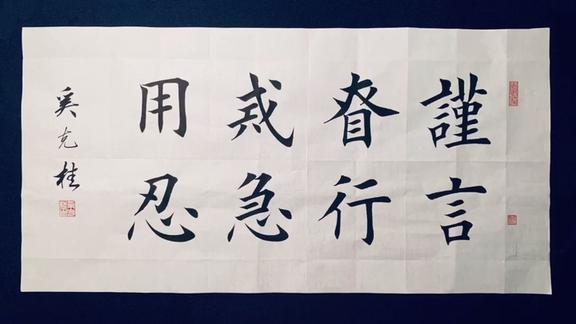 謹言
眘行
戒急
用忍
奚克桂